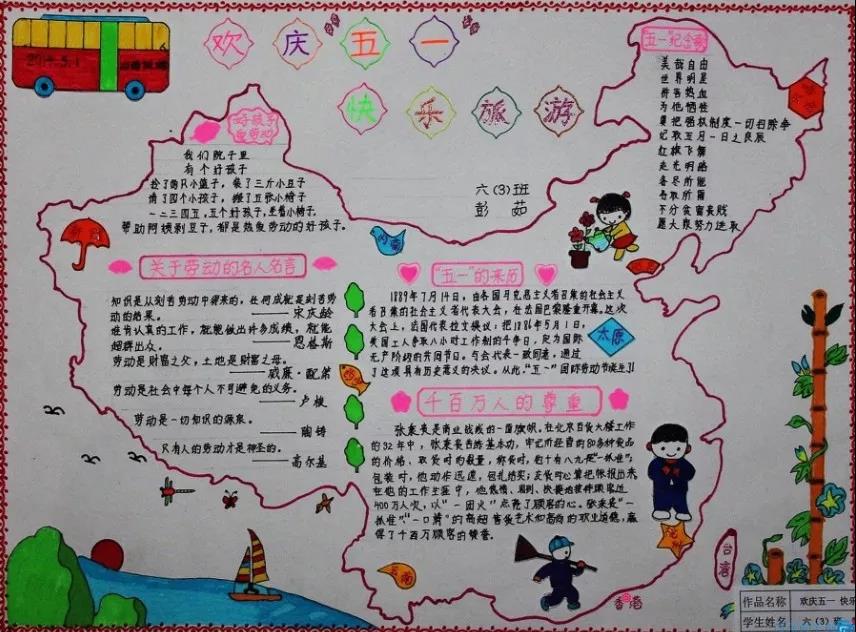 2014.5.1
欢庆五一
快乐旅游
六(3)班
彭茹
好孩子
爱劳动
我们院子里
有个好孩子
捡了两只小篮子，装了三斤小豆子
请了四个小孩子，搬了五张小椅子
一二三四五，五个好孩子，坐着小椅子.
帮助阿姨剥豆子，都是热爱劳动的好孩子。
"五一"纪念歌
美哉自由
世界明星
拼吾热血
为他牺牲
要把强权制度一切扫除净
记取五月一日之良辰
红旗飞舞
走光明路
各尽所能
各取所需
不分贫富贵贱
愿大家努力进取
新疆
内蒙
关于劳动的名人名言
知识是从刻苦劳动中得来的，任何成就是刻苦劳
动的结果。 ——宋庆龄
谁肯认真的工作，就能做出许多成绩，就能
超群出众。 ——恩格斯
劳动是财富之父，土地是财富之母。
——威廉·配第
劳动是社会中每个人不可避免的义务。
——卢梭
劳动是一切知识的源泉。
——陶铸
只有人的劳动才是神圣的。
——高尔基
"五一"的来历
1889年7月14日，由各国马克思主义者召集的社会主义
者召集的社会主义者代表大会，在法国巴黎隆重开幕。这次
大会上，法国代表拉文提议：把1886年5月1日，
美国工人争取八小时工作制的斗争日，定为国际
无产阶级的共同节日。与会代表一致同意，通过
了这项具有历史意义的决议。从此，"五一"国际劳动节诞生了！
太原
千百万人的尊重
张秉贵是商业战线的一面旗帜。在北京百货大楼工作
的32年中，张秉贵苦练基本功，牢记所经营的80多种食品
的价格、
包装时，他动作迅速，包扎结实；
在他的工作生涯中，他热情、周到、
400万人次，以"一团火"点亮了顾客的心。张秉贵"一
抓准"、"一口清"的高超售货艺术和高尚的职业道德，赢
得了千百万顾客的赞誉。
云南
香港
台湾
作品名称 欢庆五一 快乐
学生姓名 六(3)班